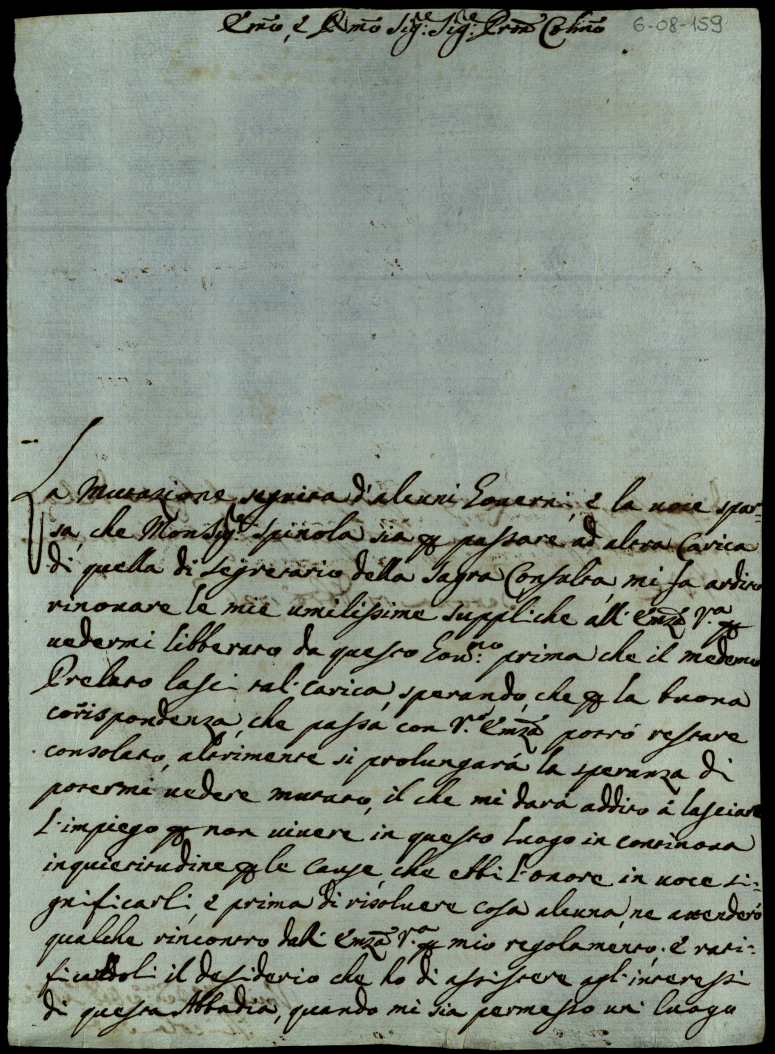 Emo, e Rmo Sig.re Sig.re Pron Colmo 6-08-159
La Mutazione seguita d'alcuni Governi, e la voce spar=
sa, che Monsig.r Spinola sia p passare ad altra Carica
di quella di Segretario della Sagra Consulta, mi fa ardito
rinovare le mie umilissime suppliche all' Emza V.a p
vedermi libberato da questo Gov.no prima che il medemo
Prelato lasci tal carica sperando, che p la buona
corispondenza, che passa con V.a Emza potrò restare
consolato, altrimente si prolungarà la speranza di
potermi vedere mutato, il che mi darà addito à lasciare
l'impiego p non vivere in questo luogo in continova
inquietitudine p le cause, che ebbi l'onore in voce si=
gnificarli, e prima di risolvere cosa alcuna, ne attenderò
qualche rincontro dall' Emza V.a p mio regolamento. e rati=
ficandoli il desiderio che ho di assistere agl'interessi
di questa Abbadia, quando mi sia permesso un luogo